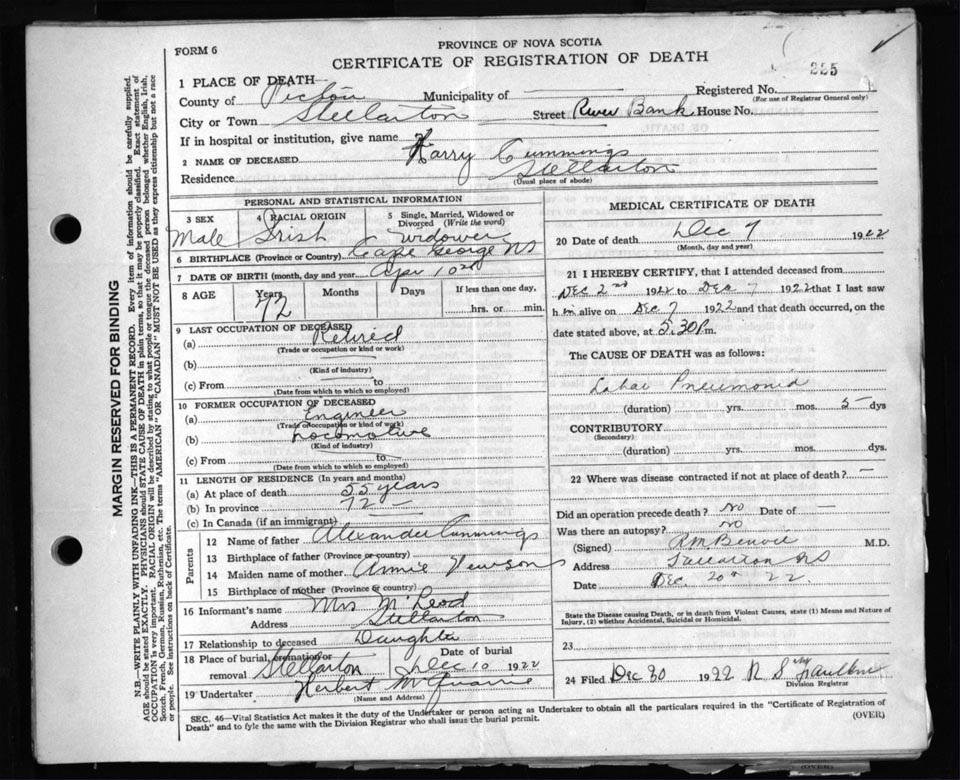 PROVINCE OF NOVA SCOTIA
FORM 6
CERTIFICATE OF REGISTRATION OF DEATH
255
1 PLACE OF DEATH
County of Pictou Municipality of Registered No.
(For use of Registrar General only)
City or Town Stellarton Street River Bank House No.
If in hospital or institution, give name
2 NAME OF DECEASED Harry Cummings
Residence Stellarton
(Usual place of abode)
PERSONAL AND STATISTICAL INFORMATION
3 SEX 4 RACIAL ORIGIN 5 Single, Married, Widowed or Divorced (Write the word)
Male Irish widower
6 BIRTHPLACE (Province or Country) Cape George NS
7 DATE OF BIRTH (month, day and year) Apr 10
8 AGE Years Months Days If less than one day,
72 hrs. or min.
9 LAST OCCUPATION OF DECEASED
(a) Retired
(Trade or occupation or kind or work)
(b)
(Kind of industry)
(c) From to
(Date from which to which so employed)
10 FORMER OCCUPATION OF DECEASED
(a) Engineer
(Trade or occupation or kind of work)
(b) Locomotive
(Kind of industry)
(c) From to
(Date from which to which so employed)
11 LENGTH OF RESIDENCE (In years and months)
(a) At place of death 55 years
(b) In province 72 —
(c) In Canada (if an immigrant)
Parents
12 Name of father Alexander Cummings
13 Birthplace of father (Province or country)
14 Maiden name of mother Annie
15 Birthplace of mother (Province or country)
16 Informant's name Mrs McLeod
Address Stellarton
17 Relationship to deceased Daughter
18 Place of burial, cremation or removal Stellarton Date of burial Dec 10 1922
19 Undertaker Herbert McQuarrie
(Name and Address)
MEDICAL CERTIFICATE OF DEATH
20 Date of death Dec 7 1922
(Month, day and year)
21 I HEREBY CERTIFY, that I attended deceased from
Dec 2nd 1922 to Dec 7 1922 that I last saw
h im alive on Dec 7 1922 and that death occurred, on the
date stated above, at 5:30 P.m.
The CAUSE OF DEATH was as follows:
Lobar Pneumonia
(duration) yrs. mos. 5 dys
CONTRIBUTORY
(Secondary)
(duration) yrs. mos. dys.
22 Where was disease contracted if not at place of death? —
Did an operation precede death? No Date of —
Was there an autopsy? No
(Signed) M.D.
Address Stellarton NS
Date Dec. 20th 22.
State the Disease causing Death, or in death from Violent Causes, state (1) Means and Nature of
Injury, (2) whether Accidental, Suicidal or Homicidal.
23
24 Filed Dec 30 1922 R S
Division Registrar
SEC. 46—Vital Statistics Act makes it the duty of the Undertaker or person acting as Undertaker to obtain all the particulars required in the "Certificate of Registration of
Death" and to fyle the same with the Division Registrar who shall issue the burial permit.
(OVER)
MARGIN RESERVED FOR BINDING
N.B.—WRITE PLAINLY WITH UNFADING INK—THIS IS A PERMANENT RECORD. Every item of information should be carefully supplied.
AGE should be stated EXACTLY. PHYSICIANS should STATE CAUSE OF DEATH in plain terms, so that it may be properly classified. Exact statement of
OCCUPATION is very important. RACIAL ORIGIN will be described by stating to what people or tongue the deceased person belonged whether English, Irish,
Scotch, French, German, Russian, Ruthenian, etc. The terms "AMERICAN" OR "CANADIAN" MUST NOT BE USED as they express citizenship but not a race
or people. See instructions on back of Certificate.
(OVER)